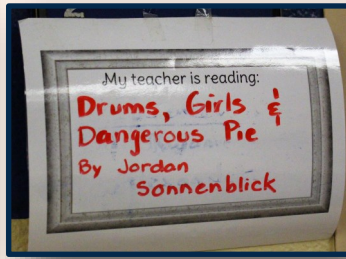 My teacher is reading:
Drums, Girls &
Dangerous Pie
By Jordan
Sonnenblick